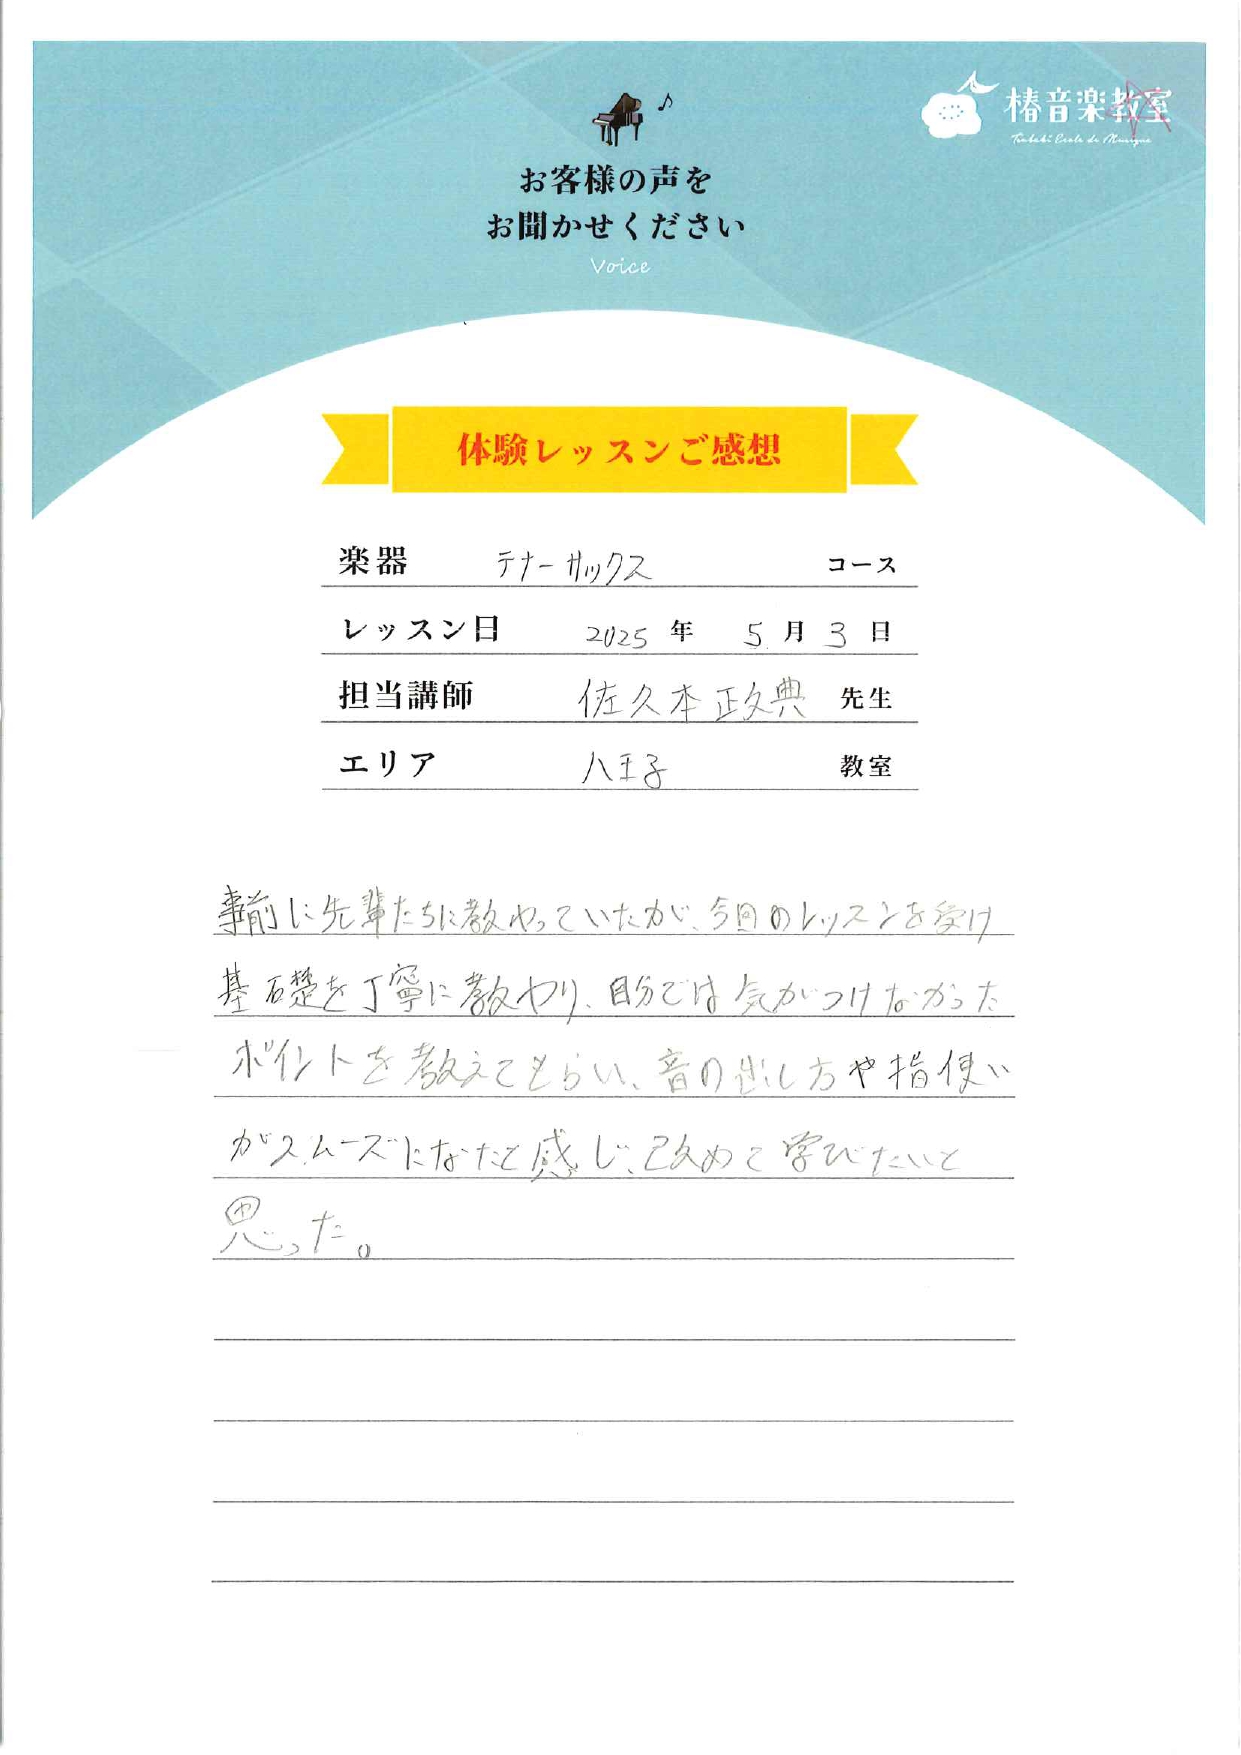 椿音楽教室
Tsubaki Ecole de Musique
お客様の声を
お聞かせください
Voice
体験レッスンご感想
楽器 テナーサックス コース
レッスン日 2025 年 5 月 3 日
担当講師 佐久本政典 先生
エリア 八王子 教室
事前に先輩たちに教わっていたが、今回のレッスンを受け
基礎を丁寧に教わり、自分では気がつけなかった
ポイントを教えてもらい、音の出し方や指使い
がスムーズになたと感じ、改めて学びたいと
思った。